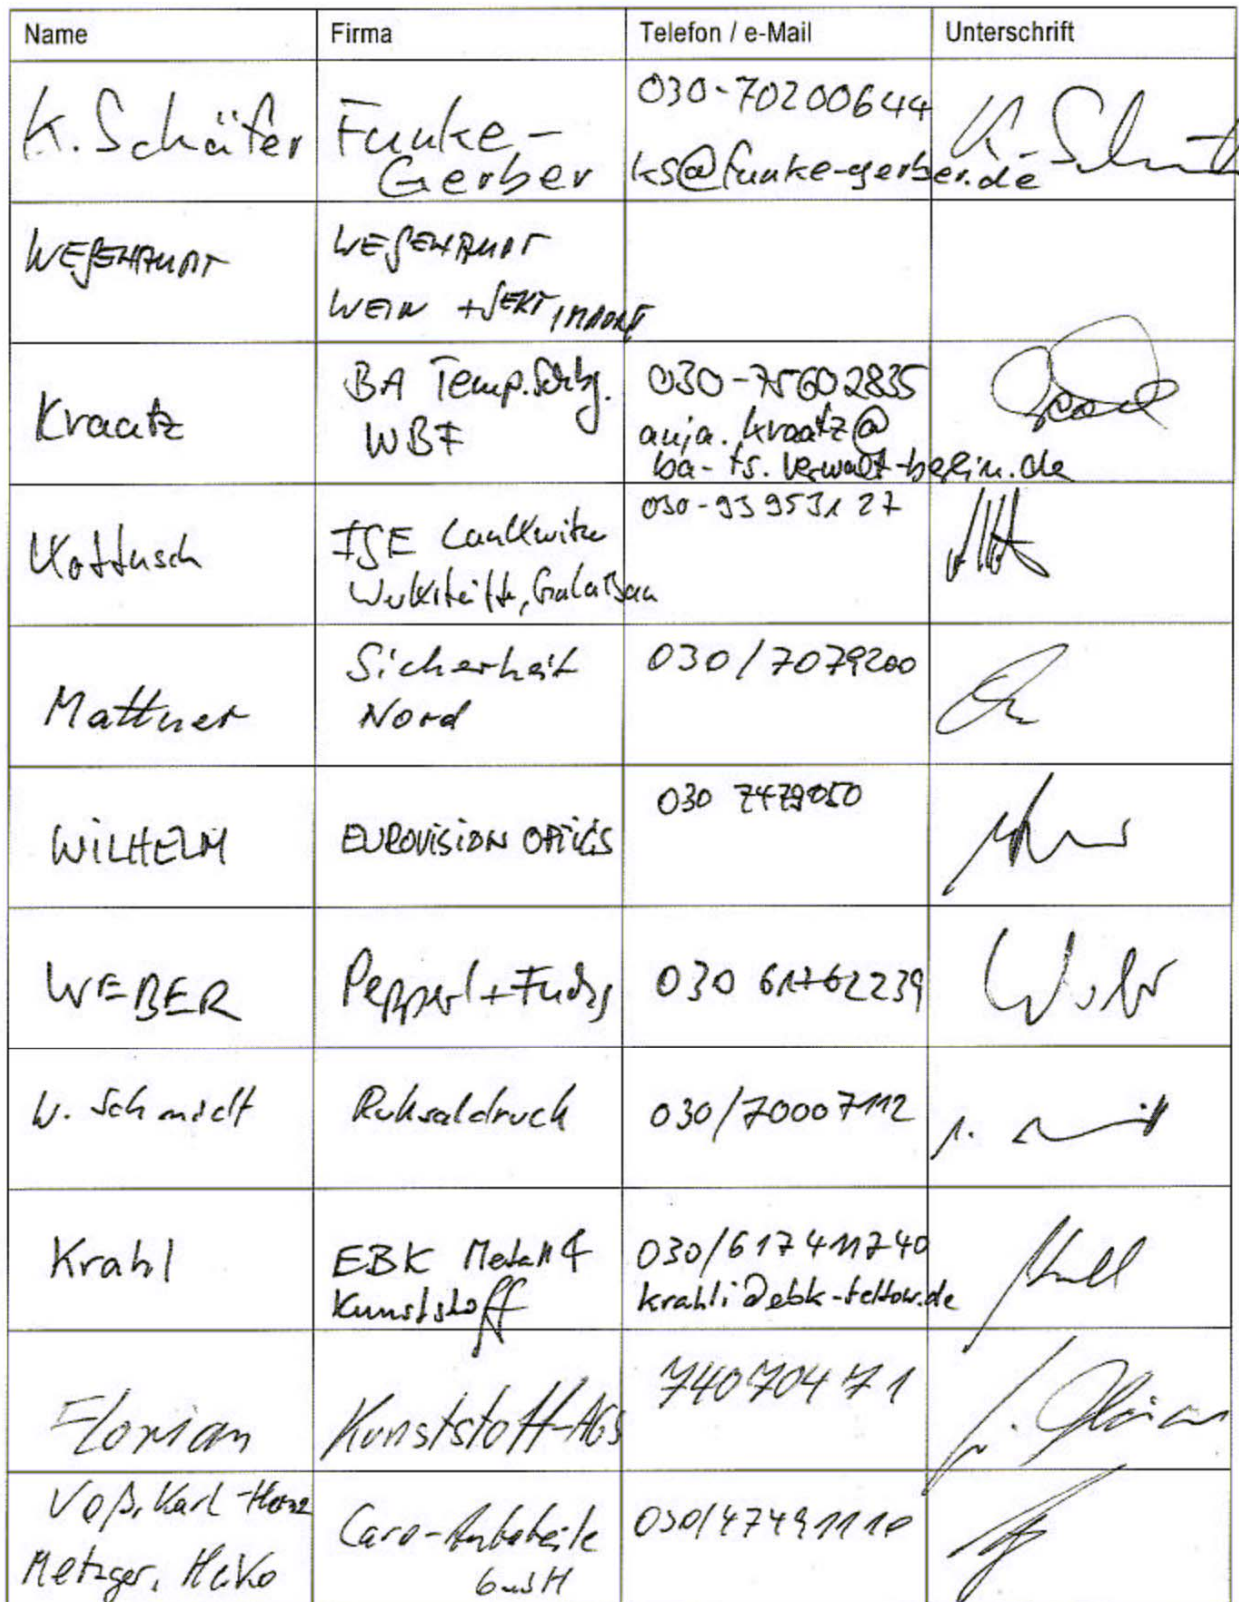 Name Firma Telefon / e-Mail Unterschrift
K. Schäfer Funke-
Gerber
030-70200644
ks@funke-gerber.de
WESENHAUPT
WEIN + SEKT IMPORT
Kraatz
BA Temp.Schbg.
WBF
030-75602835
anja.kraatz@
ba-ts.verwalt-berlin.de
Kottusch
030-93953127
Mattner
Sicherheit
Nord
030/7079200
WILHELM
EUROVISION OPTICS
030 7479050
WEBER
Pepperl+Fuchs
030 61762239
W. Schmidt
Ruksaldruck
030/70007112
Krahl
EBK Metall &
Kunststoff
030/617411740
krahli@ebk-teltow.de
Florian
Kunststoff-AGS
74070471
Voß, Karl-Heinz
Metzger, Heiko
Caro-Autoteile
GmbH
030/47491110